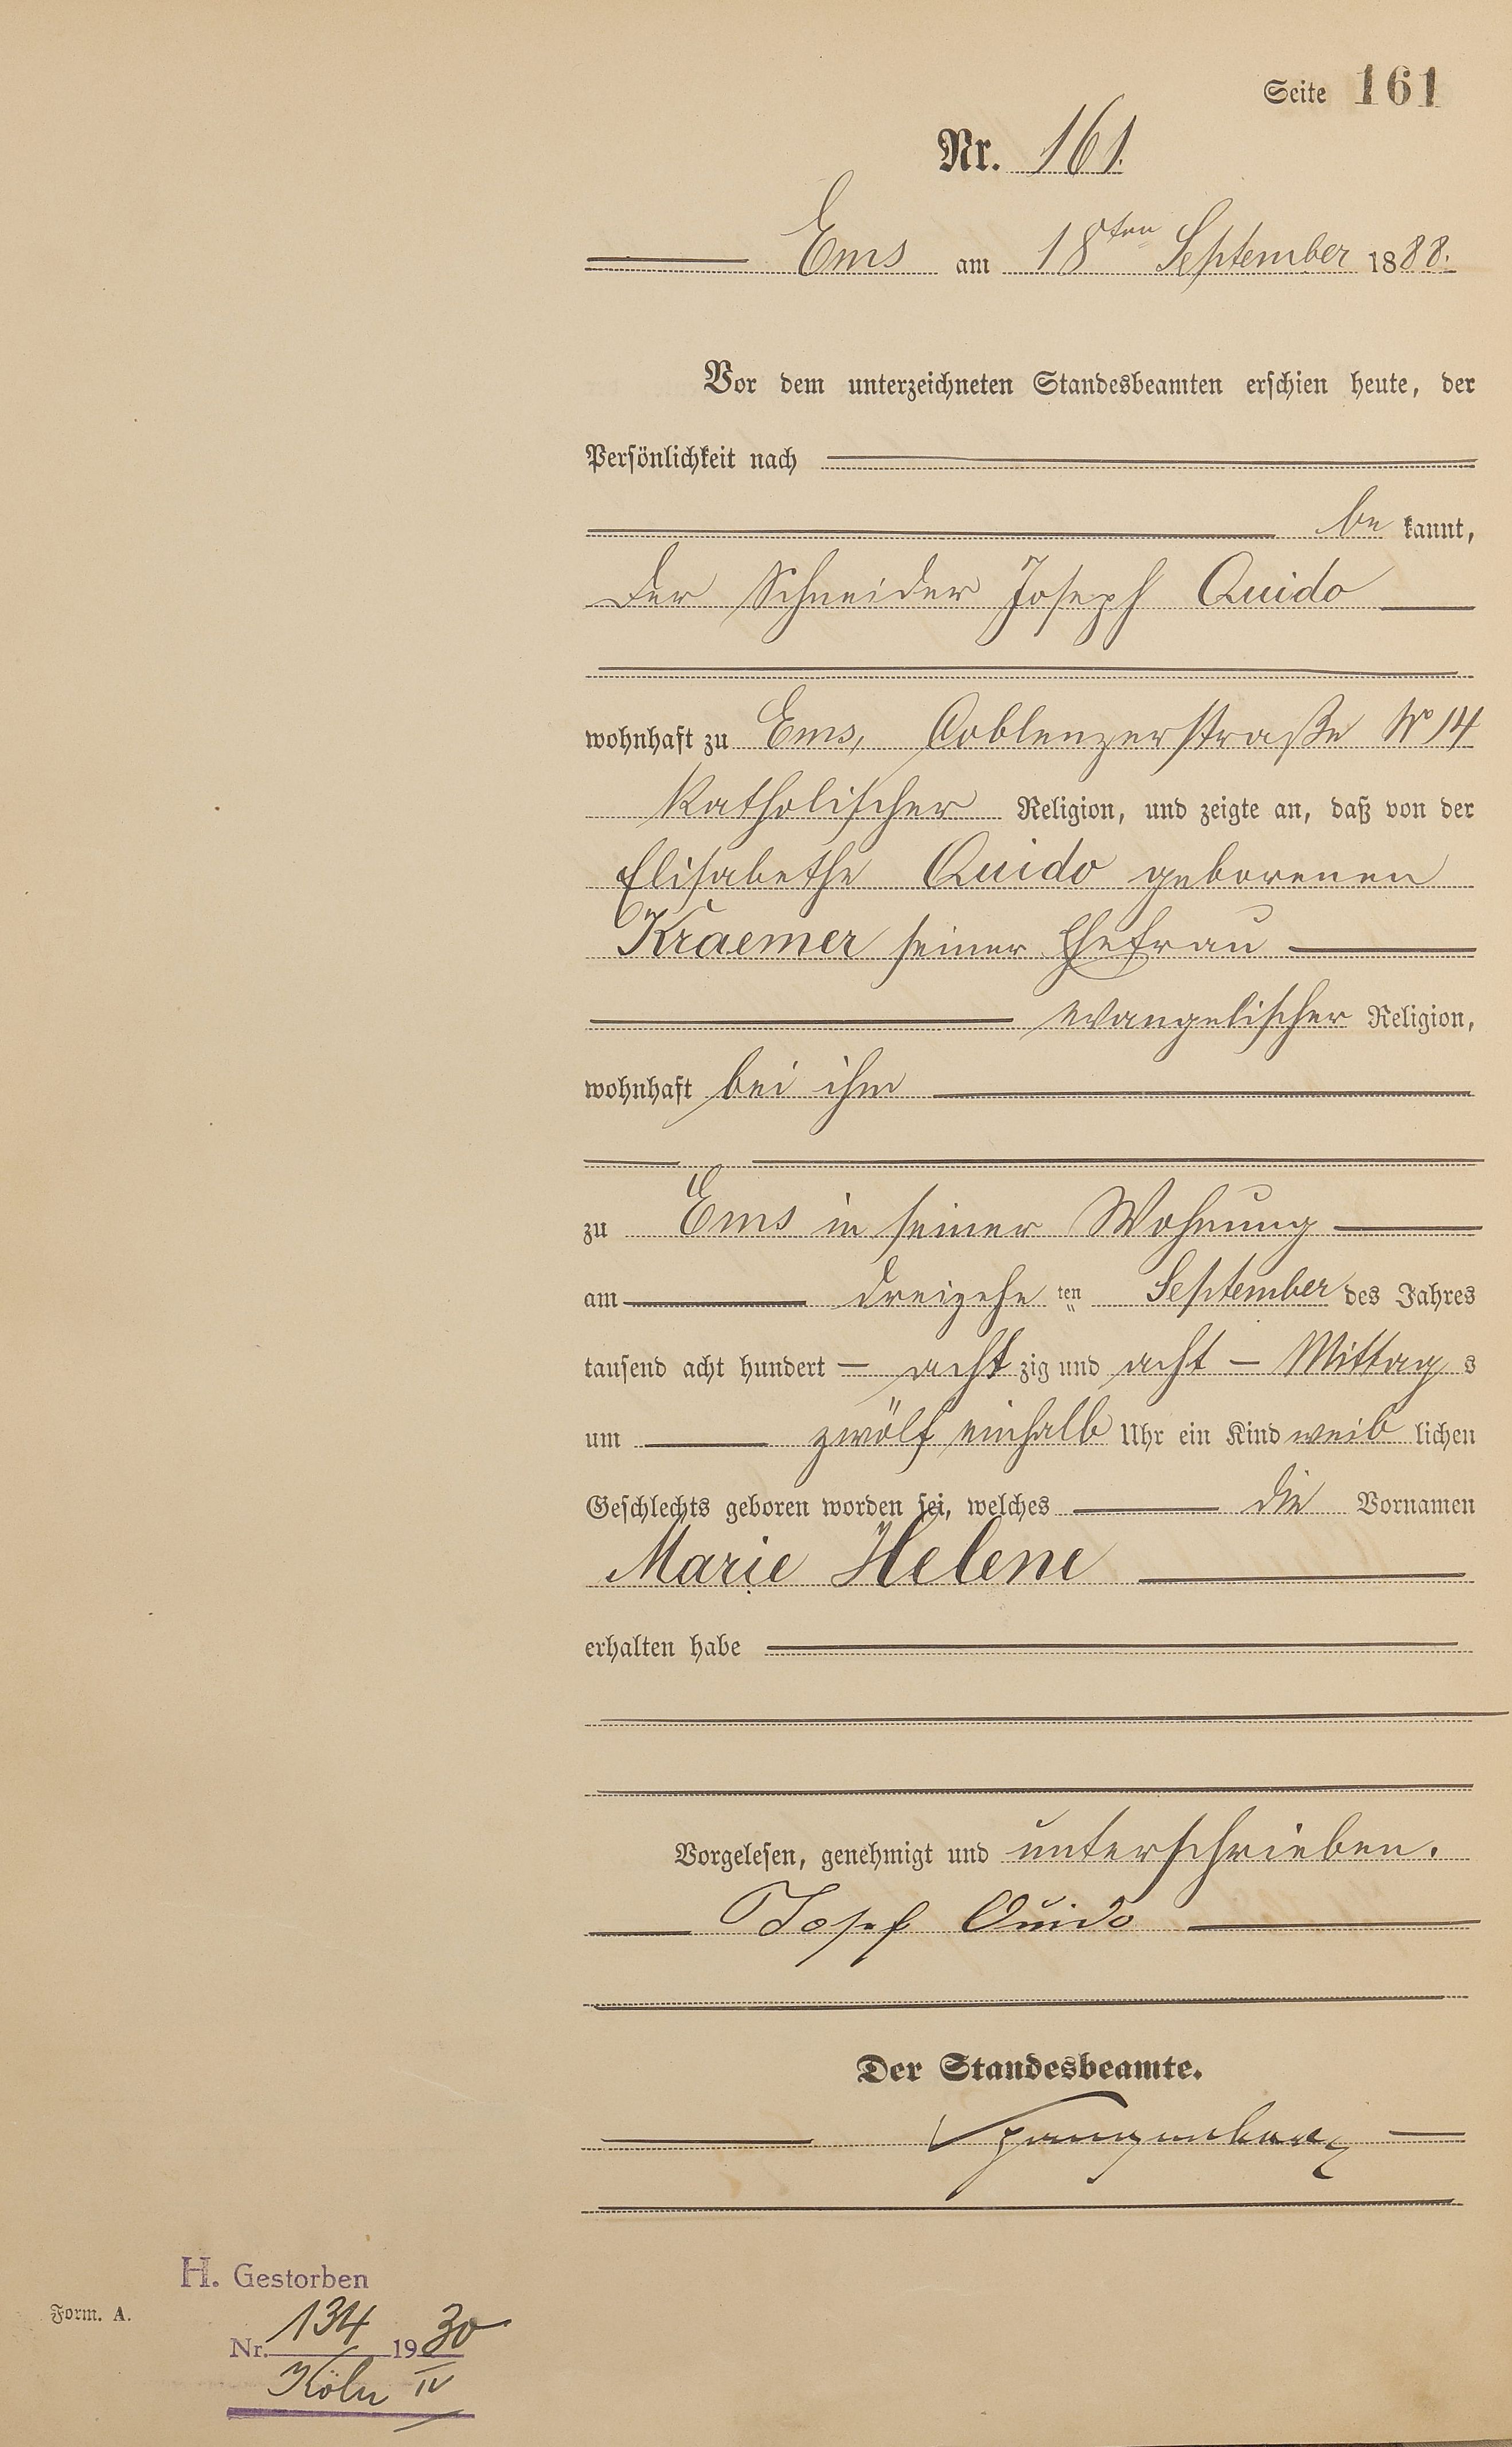 Seite 161
Nr. 161.
Ems am 18ten September 1888.
Vor dem unterzeichneten Standesbeamten erschien heute, der
Persönlichkeit nach
be kannt,
der Schneider Joseph Quido
wohnhaft zu Ems, Coblenzerstraße No 14
katholischer Religion, und zeigte an, daß von der
Elisabethe Quido geborenen
Kraemer seiner Ehefrau
evangelischer Religion,
wohnhaft bei ihm
zu Ems in seiner Wohnung
am dreizehn ten September des Jahres
tausend acht hundert acht zig und acht Mittag s
um zwölf einhalb Uhr ein Kind weib lichen
Geschlechts geboren worden sei, welches die Vornamen
Marie Helene
erhalten habe
Vorgelesen, genehmigt und unterschrieben.
Josef Quido
Der Standesbeamte.
H. Gestorben
Form. A.
Nr. 134 1930
Köln IV